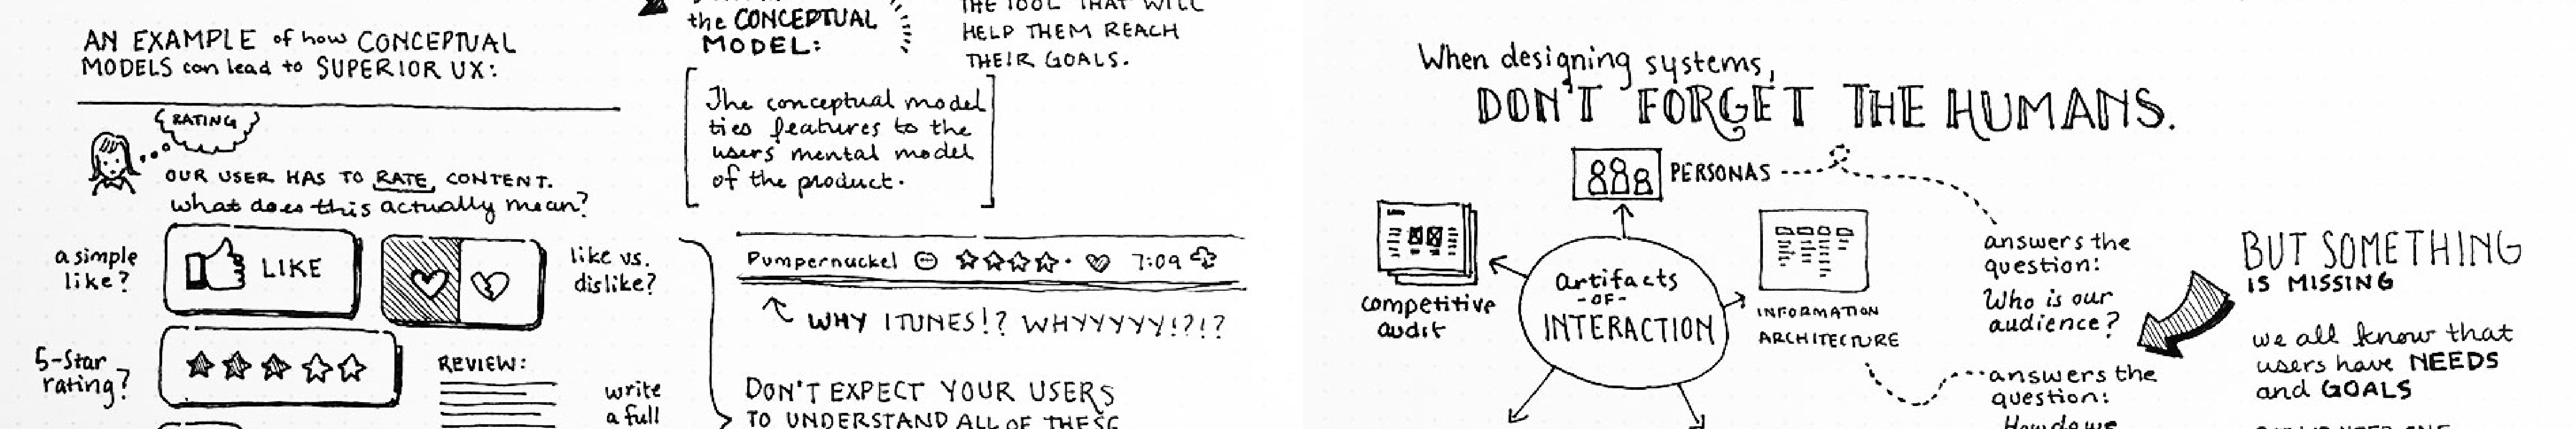 AN EXAMPLE of how CONCEPTUAL
MODELS can lead to SUPERIOR UX:
RATING
OUR USER HAS TO RATE CONTENT.
what does this actually mean?
a simple
like?
LIKE
like vs.
dislike?
5-star
rating?
REVIEW:
write
a full
the CONCEPTUAL
MODEL:
THE TOOL THAT WILL
HELP THEM REACH
THEIR GOALS.
The conceptual model
ties features to the
users' mental model
of the product.
Pumpernuckel
7:09
WHY ITUNES!? WHYYYYY!?!?
DON'T EXPECT YOUR USERS
TO UNDERSTAND ALL OF THESE
When designing systems,
DON'T FORGET THE HUMANS.
PERSONAS
competitive
audit
artifacts
-OF-
INTERACTION
INFORMATION
ARCHITECTURE
answers the
question:
Who is our
audience?
answers the
question:
How do we
BUT SOMETHING
IS MISSING
we all know that
users have NEEDS
and GOALS